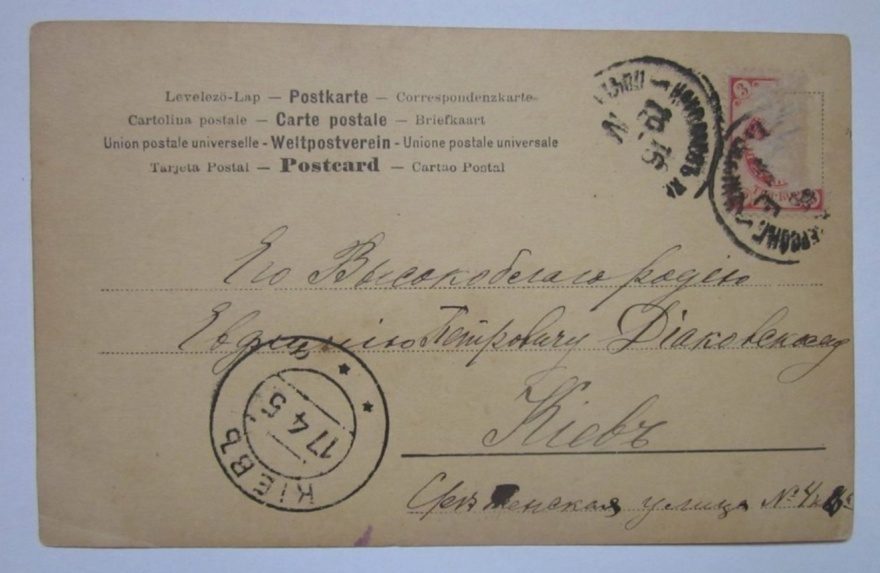 Levelező-Lap — Postkarte — Correspondenzkarte
Cartolina postale — Carte postale — Briefkaart
Union postale universelle - Weltpostverein - Unione postale universale
Tarjeta Postal — Postcard — Cartao Postal
3
Его Высокоблагородію
Евфимію Петровичу Діаковскому
Кіевъ
Срѣтенская улица №
КІЕВЪ
17 4 5